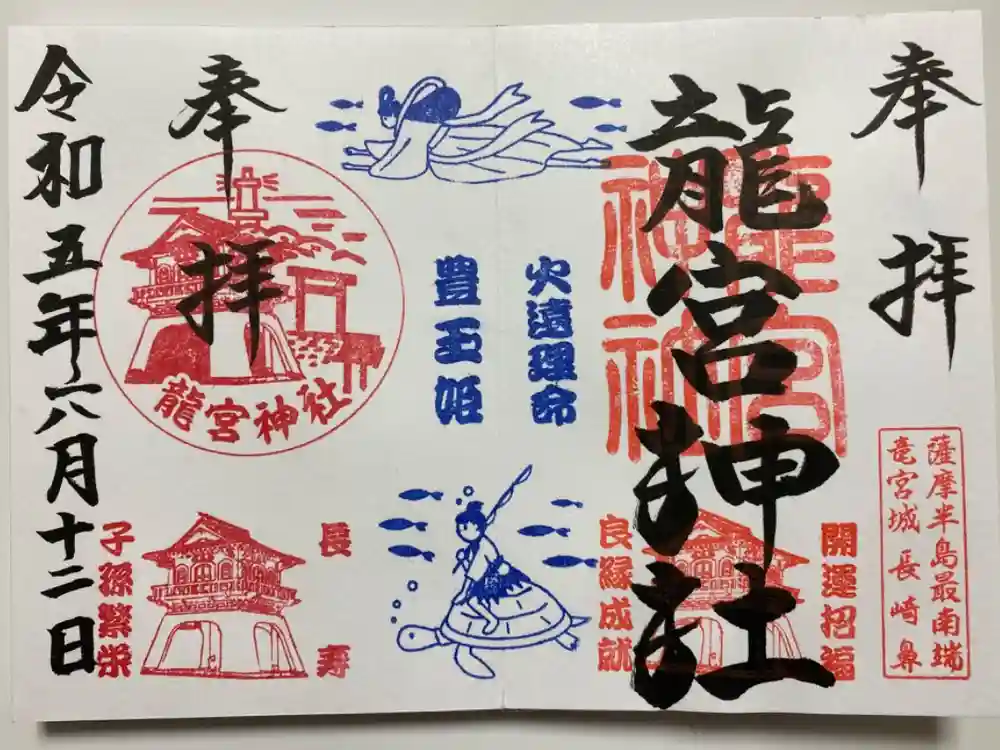 奉拝
薩摩半島最南端
竜宮城長崎鼻
龍宮神社
龍宮
神社
開運招福
良縁成就
火遠理命
豊玉姫
長寿
奉拝
龍宮神社
子孫繁栄
令和五年六月十二日